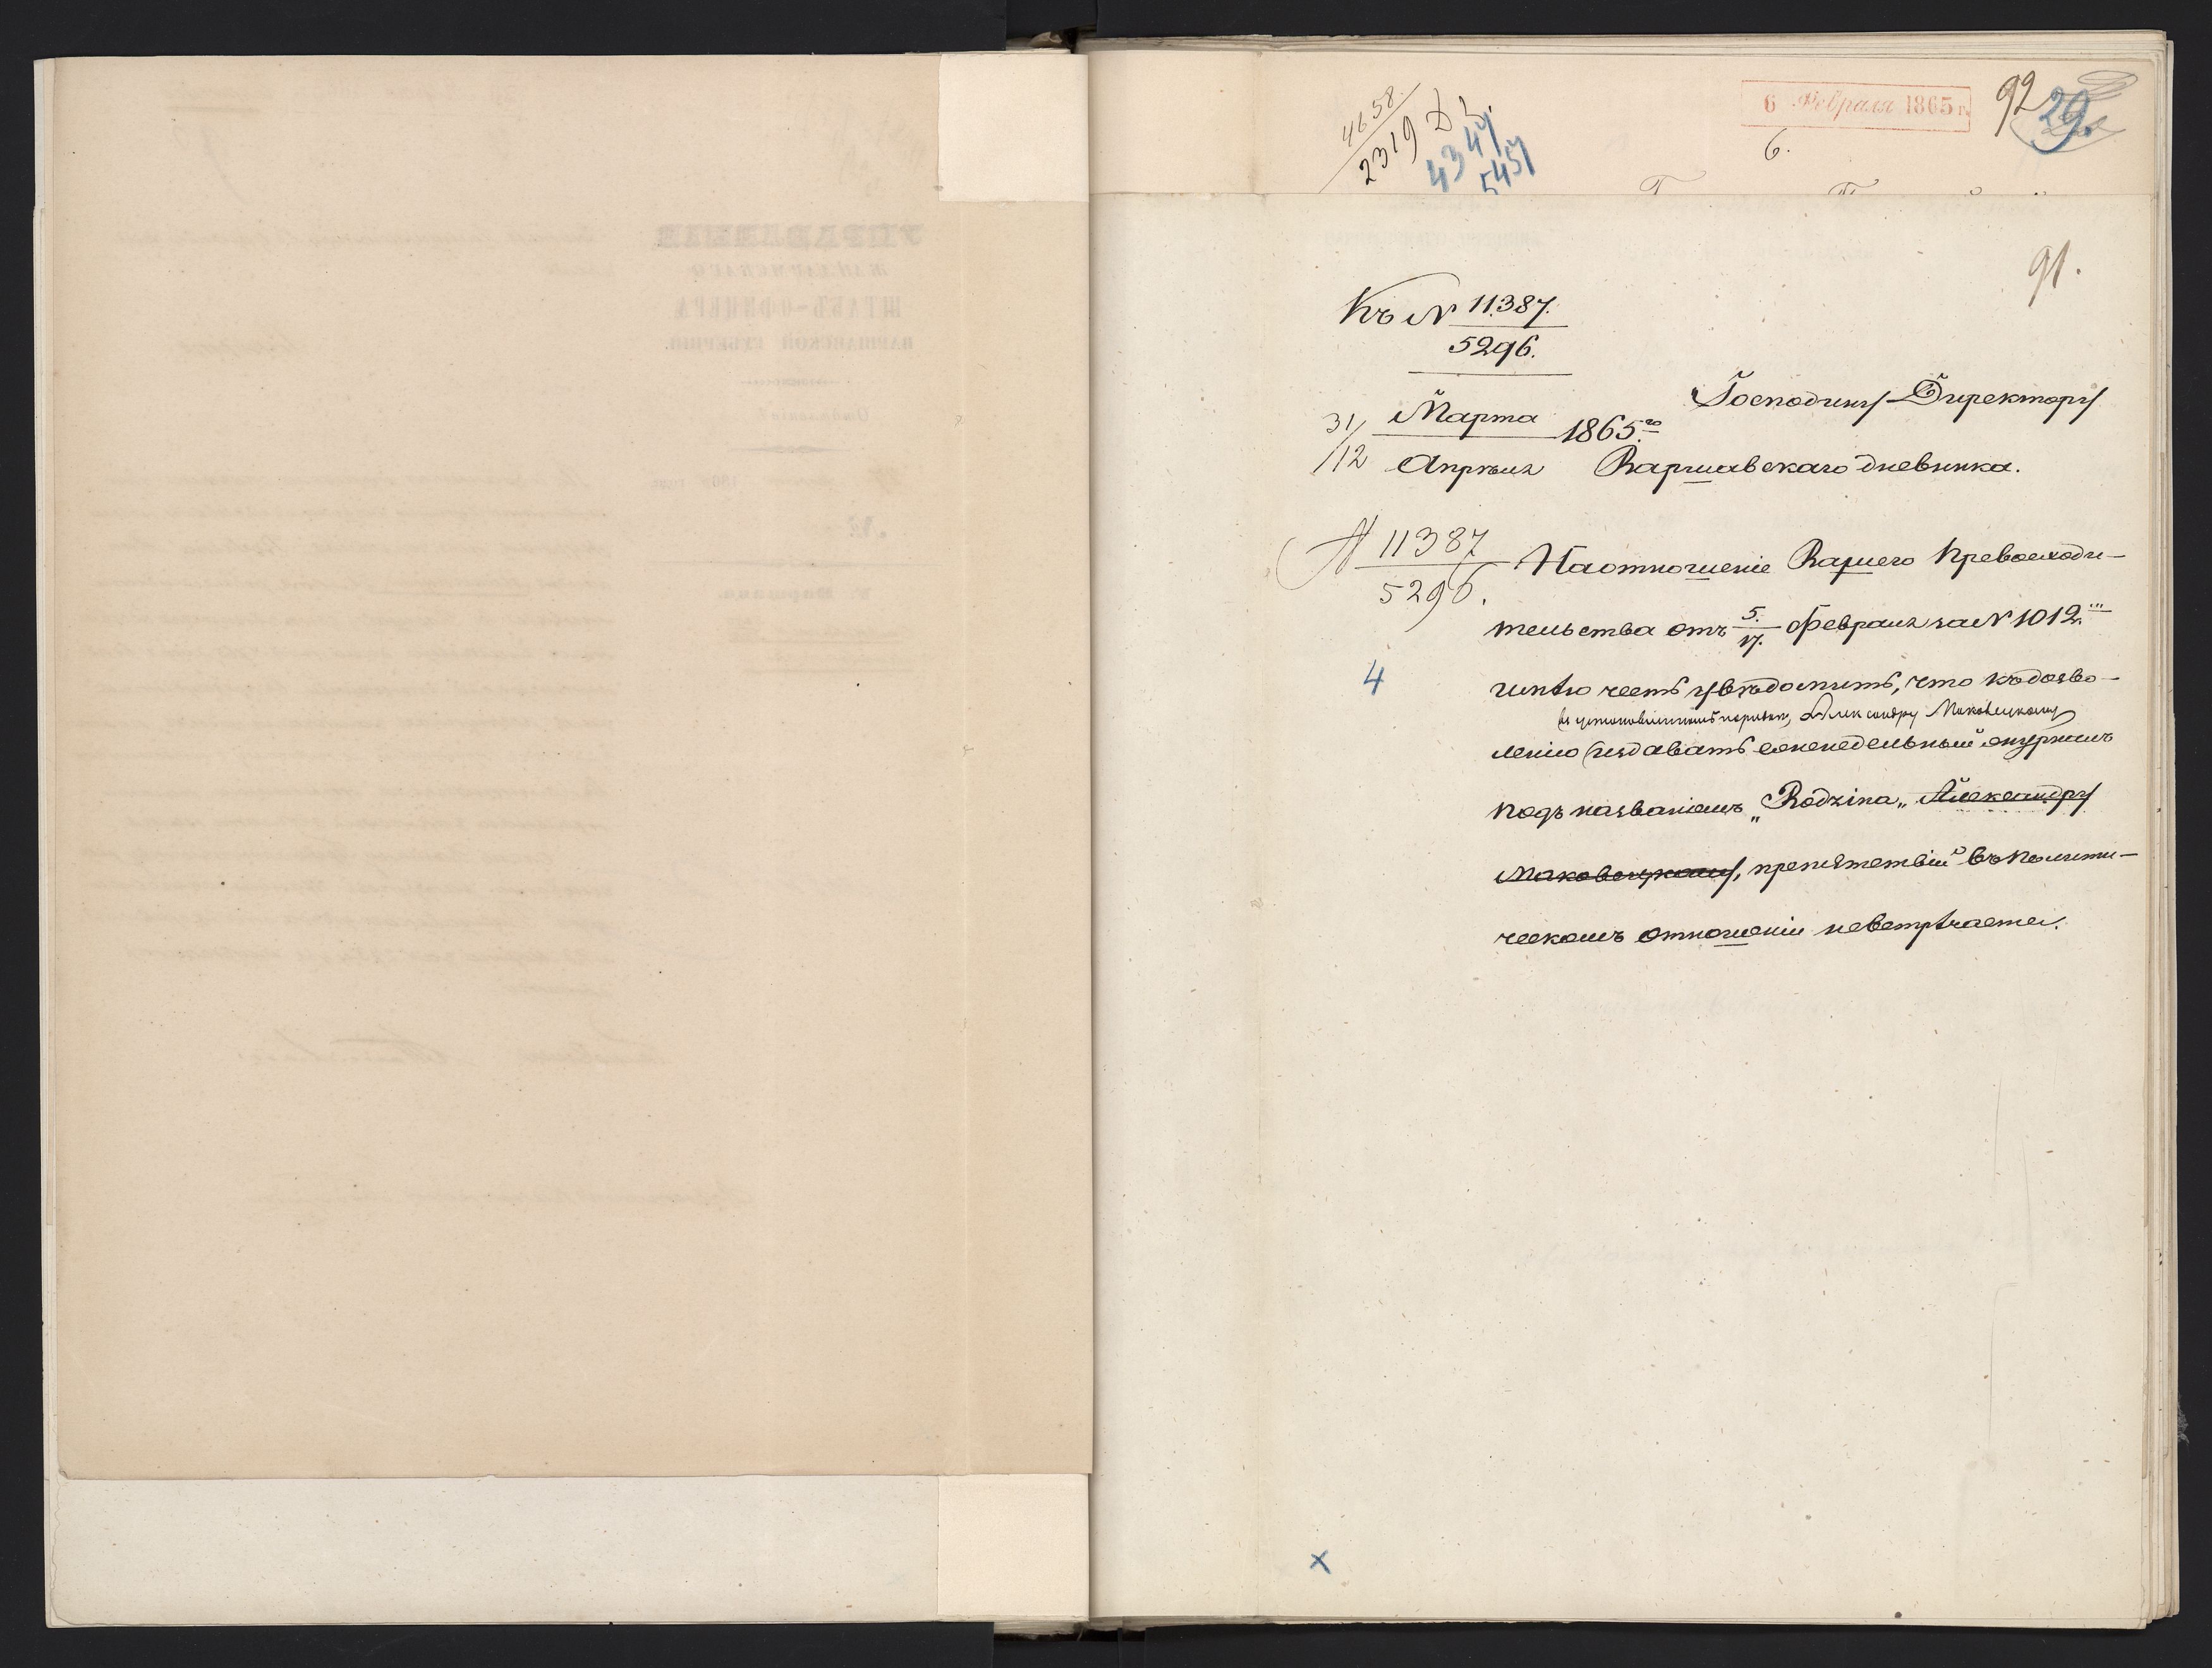 4658.
2319
4347
5457
6 Февраля 1865 г.
6.
92
29.
91.
Къ № 11.387.
5296.
31/12 Марта
Апрѣля 1865.го
Господину Директору
Варшавскаго дневника.
№ 11387
5296.
На отношеніе Вашего Превосходи-
тельства отъ 5./17. Февраля за № 1012
4
имѣю честь увѣдомить, что къ дозво-
въ установленномъ порядкѣ, Александру Маковецкому
ленію издавать еженедельный журналъ
подъ названіемъ „Rodzina„ Александру
Маковецкому, препятствій въ полити-
ческомъ отношеніи невстрѣчается.
x